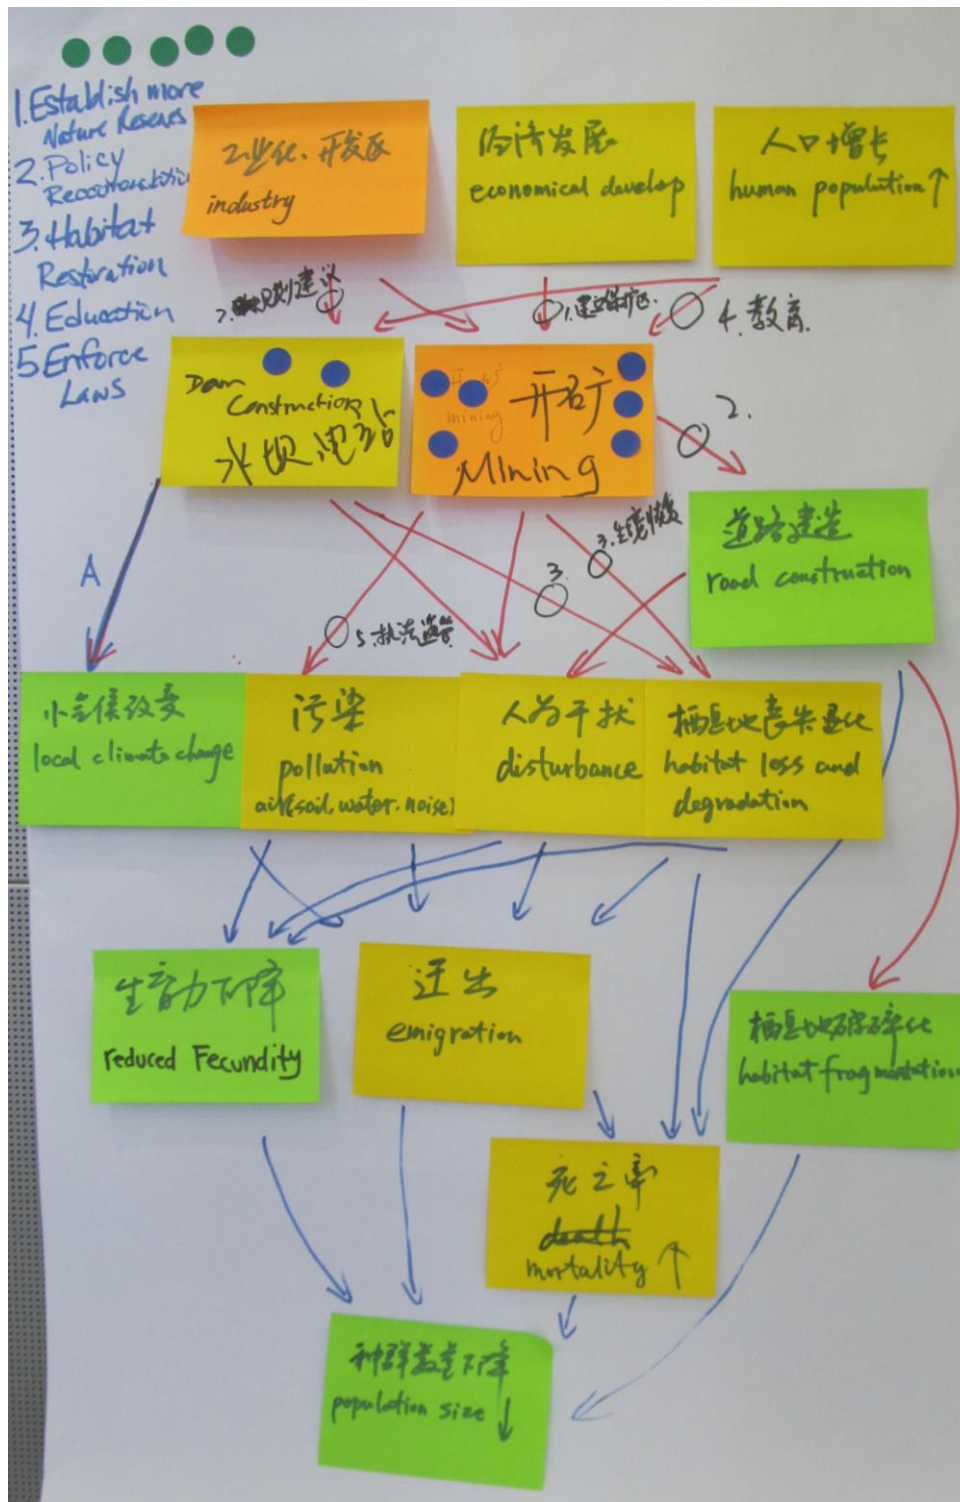 1. Establish more
Nature Reserves
2. Policy
3. Habitat
Restoration
4. Education
5 Enforce
Laws
工业化、开发区
industry
经济发展
economical develop
人口增长
human population ↑
2. 规划建议
1. 建立保护区
4. 教育
Dam
Construction
水坝电站
开矿
mining
开矿
Mining
2.
道路建造
road construction
3. 生境恢复
3.
A
5. 执法监管
小气候改变
local climate change
污染
pollution
air(soil, water, noise)
人为干扰
disturbance
栖息地丧失退化
habitat loss and
degradation
生育力下降
reduced Fecundity
迁出
emigration
栖息地破碎化
habitat fragmentation
死亡率
death
mortality ↑
种群数量下降
population size ↓